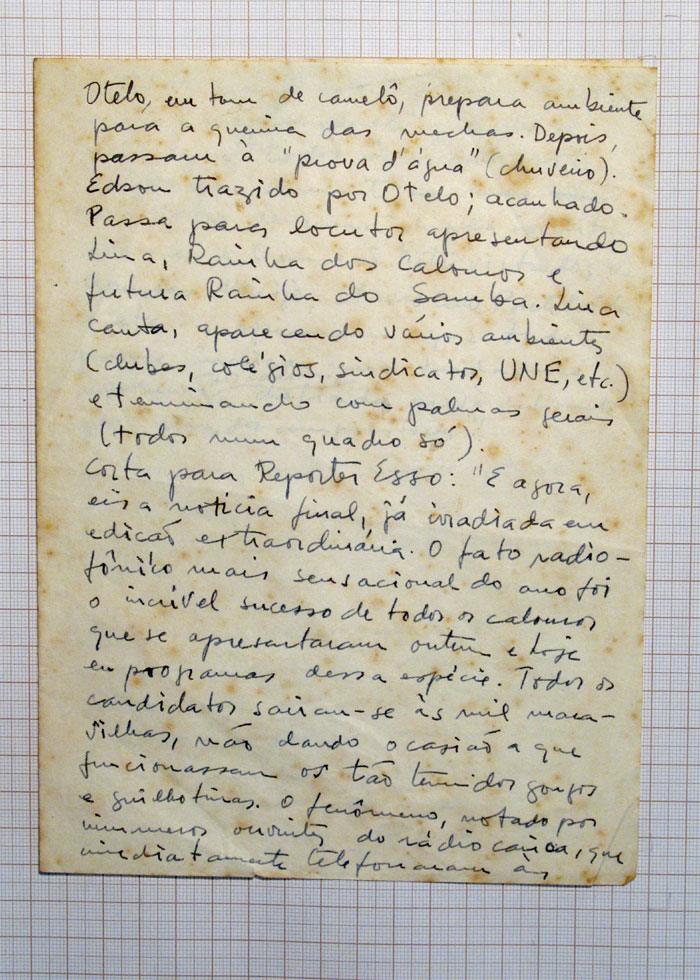 Otelo, em tom de camelô, prepara ambiente
para a queima das mechas. Depois,
passam à "prova d'água" (chuveiro).
Edson trazido por Otelo; acanhado.
Passa para locutor apresentando
Lina, Rainha dos Calouros e
futura Rainha do Samba. Lina
canta, aparecendo vários ambientes
(clubes, colégios, sindicatos, UNE, etc.)
e terminando com palmas gerais
(todos num quadro só).
Corta para Reporter Esso: "E agora,
eis a notícia final, já irradiada em
edição extraordinária. O fato radio-
fônico mais sensacional do ano foi
o incrível sucesso de todos os calouros
que se apresentaram ontem e hoje
em programas dessa espécie. Todos os
candidatos sairam-se às mil mara-
vilhas, não dando ocasião a que
funcionassem os tão temidos gongos
e guilhotinas. O fenômeno, notado por
inumeros ouvintes do rádio carioca, que
imediatamente telefonaram às